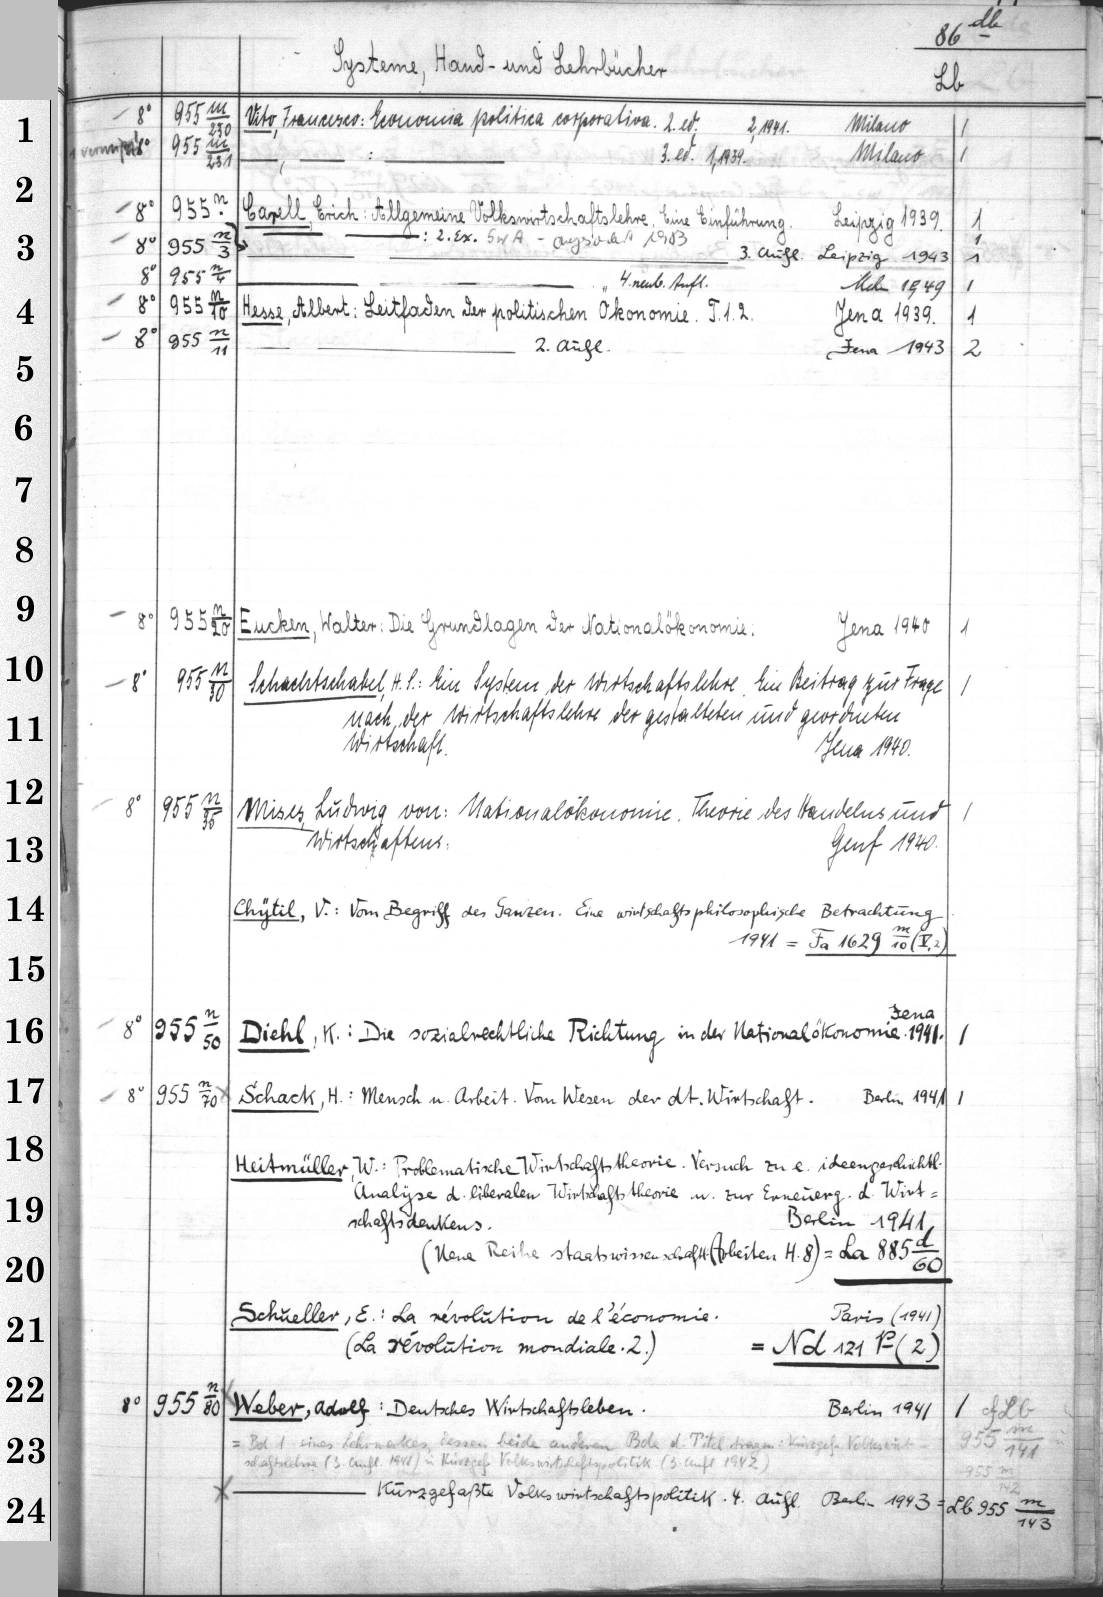 86 db
Systeme, Hand- und Lehrbücher
Lb
1
8° 955 m/230 Vito, Francesco: Economia politica corporativa. 2. ed. 2, 1941. Milano 1
8° 955 m/231 —, — : — 3. ed. 1, 1939. Milano 1
2
8° 955 n Carell, Erich: Allgemeine Volkswirtschaftslehre. Eine Einführung. Leipzig 1939. 1
3
8° 955 n/3 — — : 2. Ex. 1983 1
3. Aufl. Leipzig 1943 1
8° 955 n/4 — — „ 4. neub. Aufl. Mch 1949 1
4
8° 955 n/10 Hesse, Albert: Leitfaden der politischen Ökonomie. T. 1.2. Jena 1939. 1
8° 955 n/11 — — 2. Aufl. Jena 1943 2
5
6
7
8
9
8° 955 n/20 Eucken, Walter: Die Grundlagen der Nationalökonomie. Jena 1940 1
10
8° 955 n/30 Schachtschabel, H. P.: Ein System der Wirtschaftslehre. Ein Beitrag zur Frage 1
11
nach der Wirtschaftslehre der gestalteten und geordneten
Wirtschaft. Jena 1940.
12
8° 955 n/35 Mises, Ludwig von: Nationalökonomie. Theorie des Handelns und 1
13
Wirtschaftens. Genf 1940.
14
Chytil, V.: Vom Begriff des Ganzen. Eine wirtschaftsphilosophische Betrachtung.
1941 = Fa 1629 m/10 (V,2)
15
Jena
16
8° 955 n/50 Diehl, K.: Die sozialrechtliche Richtung in der Nationalökonomie. 1941. 1
17
8° 955 n/70 Schack, H.: Mensch u. Arbeit. Vom Wesen der dt. Wirtschaft. Berlin 1941 1
18
Heitmüller, W.: Problematische Wirtschaftstheorie. Versuch zu e. ideengeschichtl.
19
Analyse d. liberalen Wirtschaftstheorie u. zur Erneuerg. d. Wirt=
schaftsdenkens. Berlin 1941
20
(Neue Reihe staatswissenschaftl. Arbeiten H. 8) = La 885 d/60
21
Schueller, E.: La révolution de l'économie. Paris (1941)
(La révolution mondiale. 2.) = Nd 121 p (2)
22
8° 955 n/80 Weber, Adolf: Deutsches Wirtschaftsleben. Berlin 1941 1 cf Lb
23
= Bd 1 eines Lehrwerkes, dessen beide anderen Bde d. Titel tragen: Kurzgef. Volkswirt- 955 m/141 u
schaftslehre (3. Aufl. 1941) u. Kurzgef. Volkswirtschaftspolitik (3. Aufl. 1942) 955 m/142
24
— Kurzgefaßte Volkswirtschaftspolitik. 4. Aufl. Berlin 1943 = Lb 955 m/143